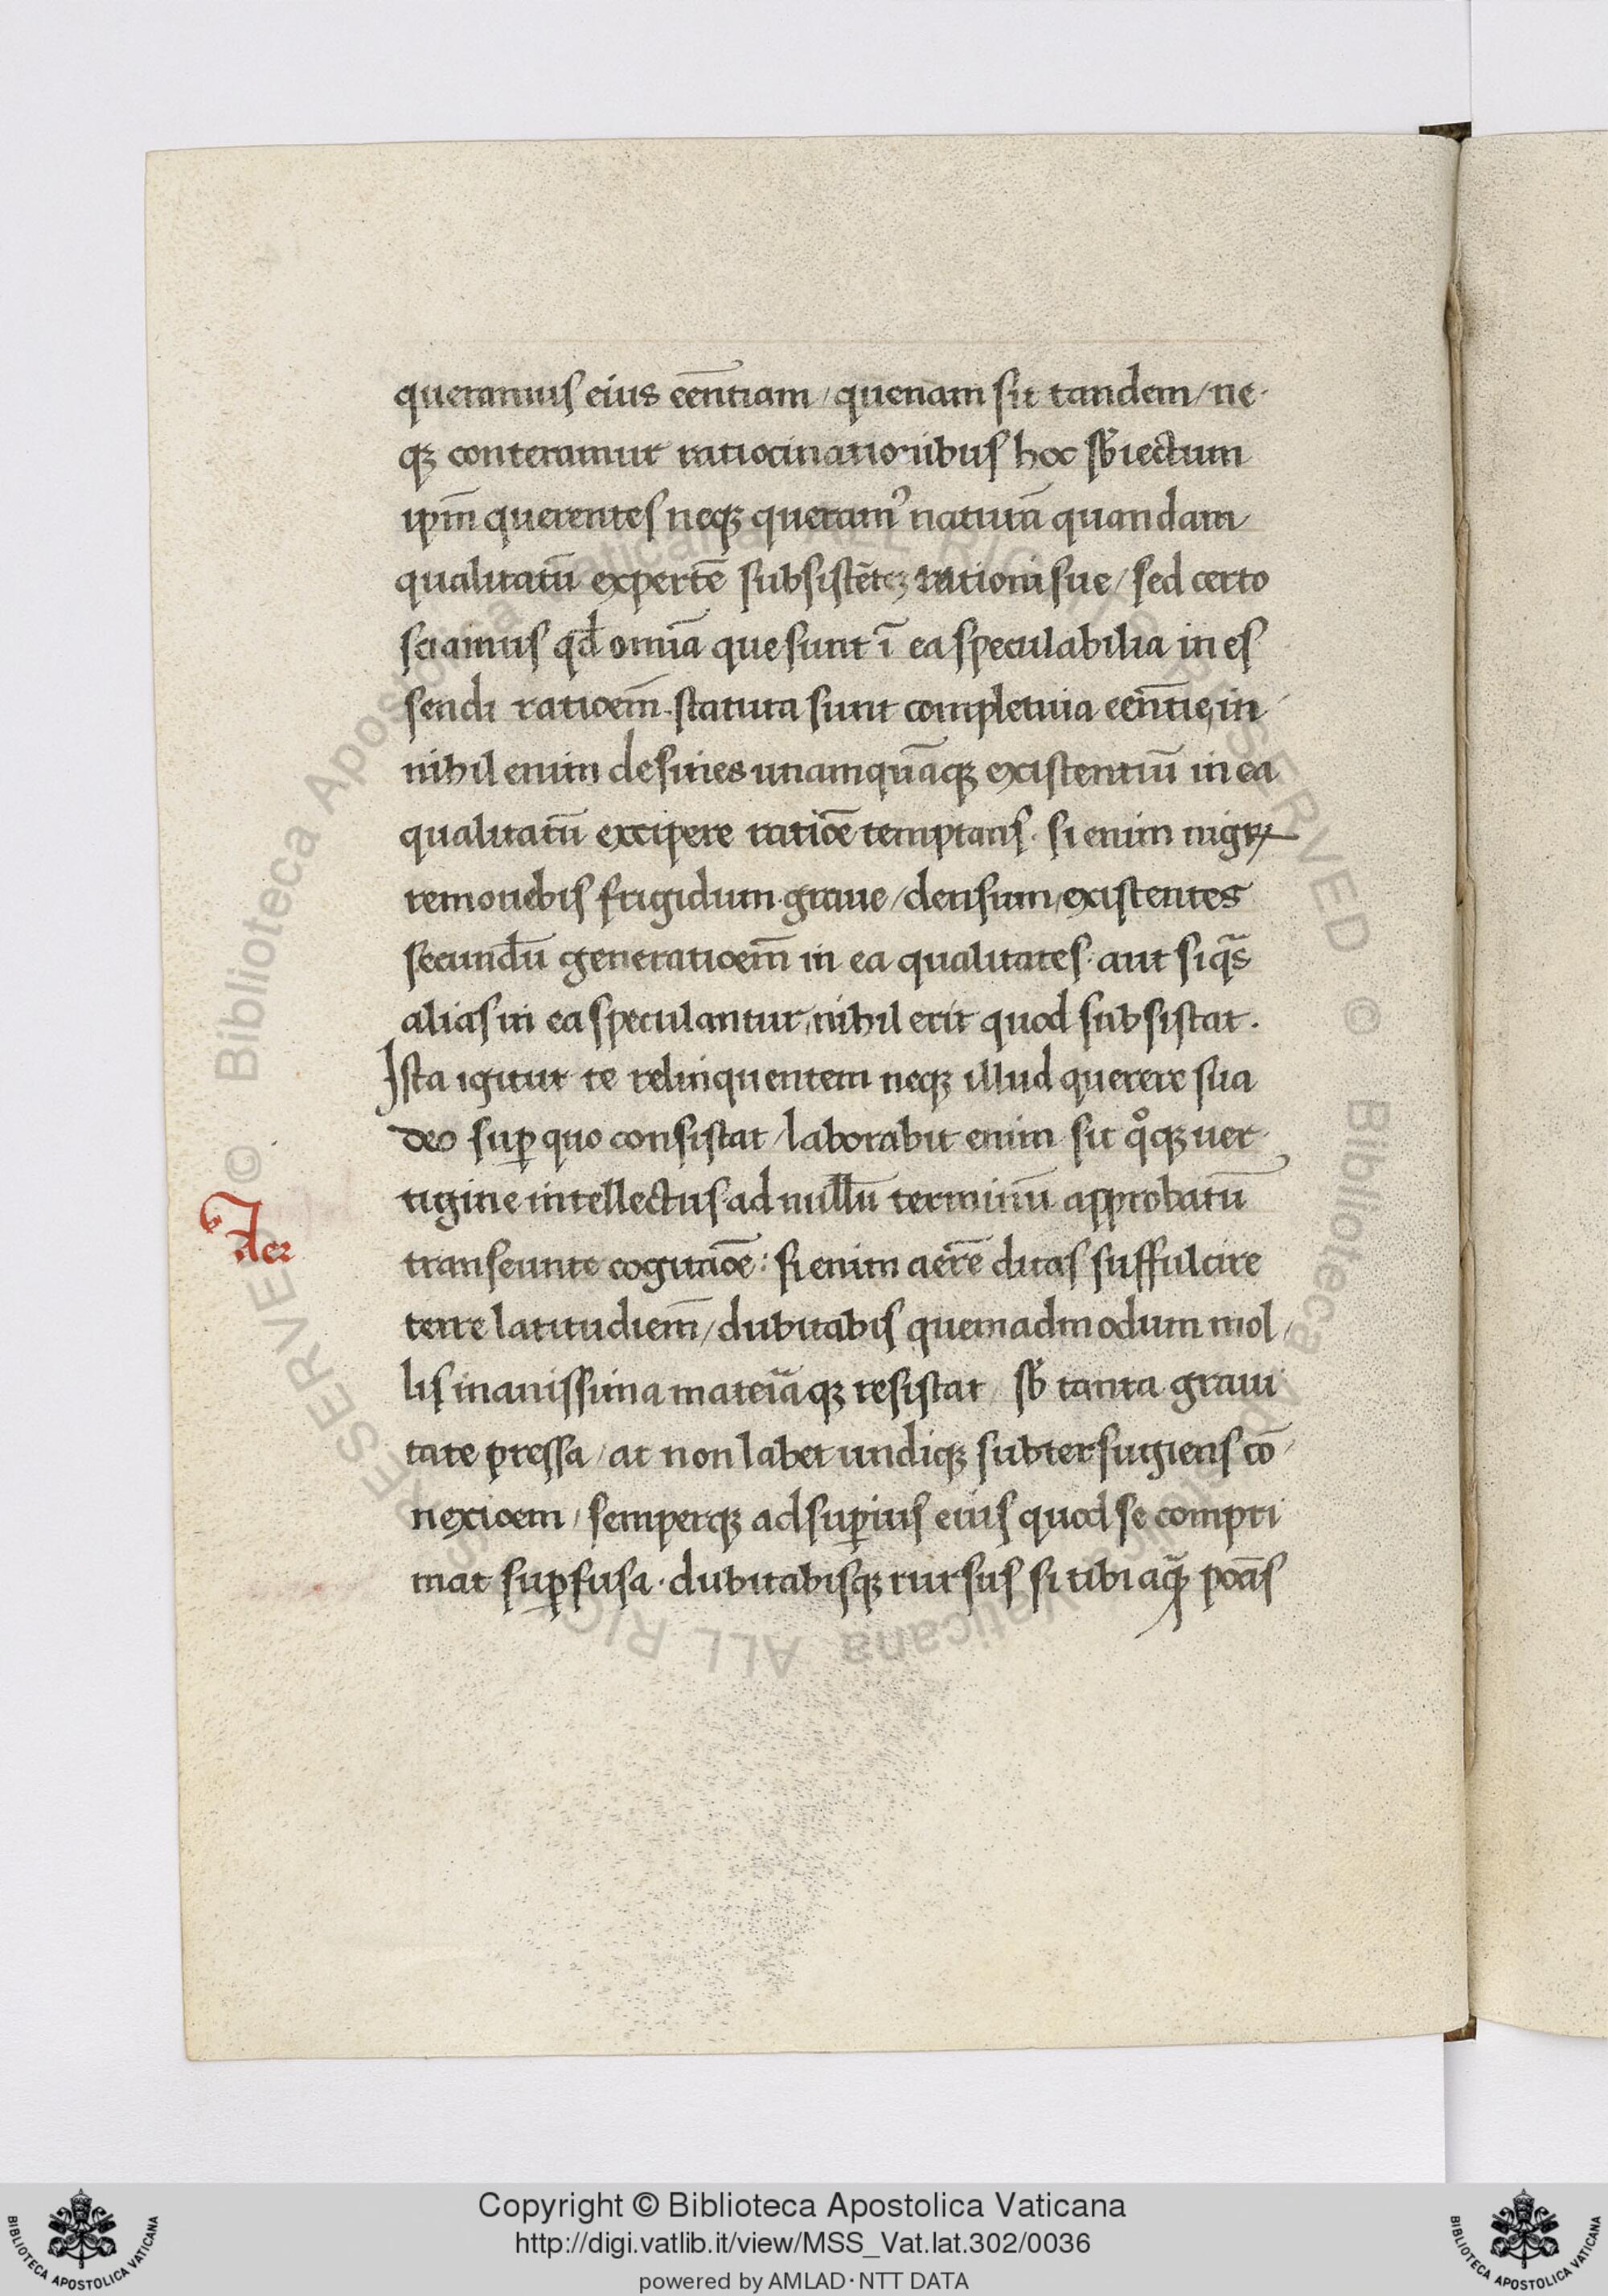 queramus eius eēntiam / quenam sit tandem / ne·
qꝫ conteramur ratiocinationibus hoc sb̄iectum
ip̄m querentes neqꝫ queram᾿ naturā quandam
qualitatū expertē subsistētē rationi sue / sed certo
sciamus qd̄ omīa que sunt ī ea speculabilia in es
sendi ratioem̄ · statuta sunt completiua eēntie, in
nihil enim desines unamquāqꝫ existentiū in ea
qualitatū excipere ratiōe temptans · si enim nigꝝ
remouebis frigidum · graue / densum / existentes
secundū generatioem̄ in ea qualitates · aut si qās
alias in ea speculantur, nihil erit quod subsistat ·
Ista igitur te relinquentem neqꝫ illud querere sua
deo suꝑ quo consistat / laborabit enim sit qͦqꝫ uer
tigine intellectus · ad nullū terminū approbatū
Aer
transeunte cogitatiōe : si enim aerē dicas suffulcire
terre latitudiem̄ / dubitabis quemadmodum mol /
lis inanissima mateīaqꝫ resistat / sb̄ tanta graui
tate pressa / at non labet undiqꝫ subterfugiens cō /
nexioem / semperqꝫ ad suꝑius eius quod se compri
mat suꝑfusa · dubitabisqꝫ rursus si tibi aqā
Copyright © Biblioteca Apostolica Vaticana
http://digi.vatlib.it/view/MSS_Vat.lat.302/0036
powered by AMLAD·NTT DATA